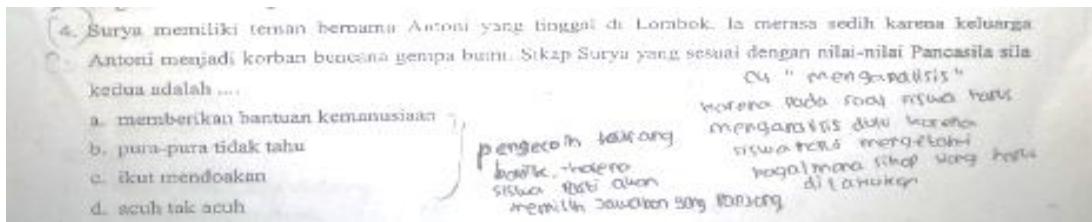 4. Surya memiliki teman bernama Antoni yang tinggal di Lombok. Ia merasa sedih karena keluarga
Antoni menjadi korban bencana gempa bumi. Sikap Surya yang sesuai dengan nilai-nilai Pancasila sila
kedua adalah ....
a. memberikan bantuan kemanusiaan
b. pura-pura tidak tahu
c. ikut mendoakan
d. acuh tak acuh
pengecoh kurang
karena
siswa pasti akan
memilih jawaban yang panjang
C4 "menganalisis"
karena pada soal siswa harus
menganalisis dulu karena
siswa harus mengetahui
bagaimana sikap yang harus
dilakukan